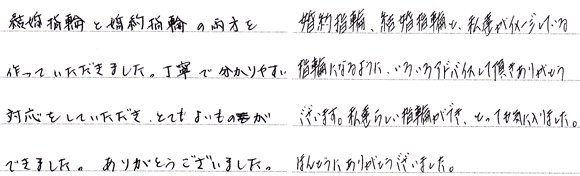 結婚指輪と婚約指輪の両方を
作っていただきました。丁寧で分かりやすい
対応をしていただき、とてもよいものが
できました。ありがとうございました。
婚約指輪、結婚指輪と、私達がイメージしている
指輪になるように、いろいろアドバイスして頂きありがとう
ございます。私達らしい指輪ができ、とっても気に入りました。
ほんとうにありがとうございました。